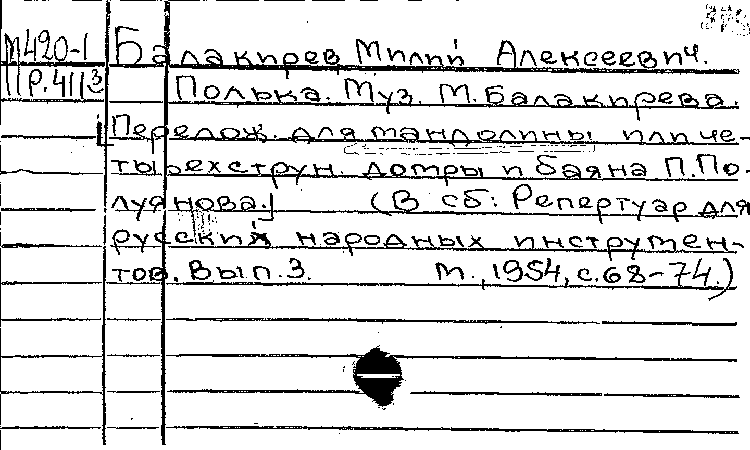 М420-1 Балакирев, Милий Алексеевич.
Пр.4113 Полька. Муз. М.Балакирева.
[Перелож. для мандолины или че-
тырехструн. домры и баяна П.По-
луянова.] (В сб: Репертуар для
русских народных инструмен-
тов. Вып.3. М.,1954, с.68-74.)